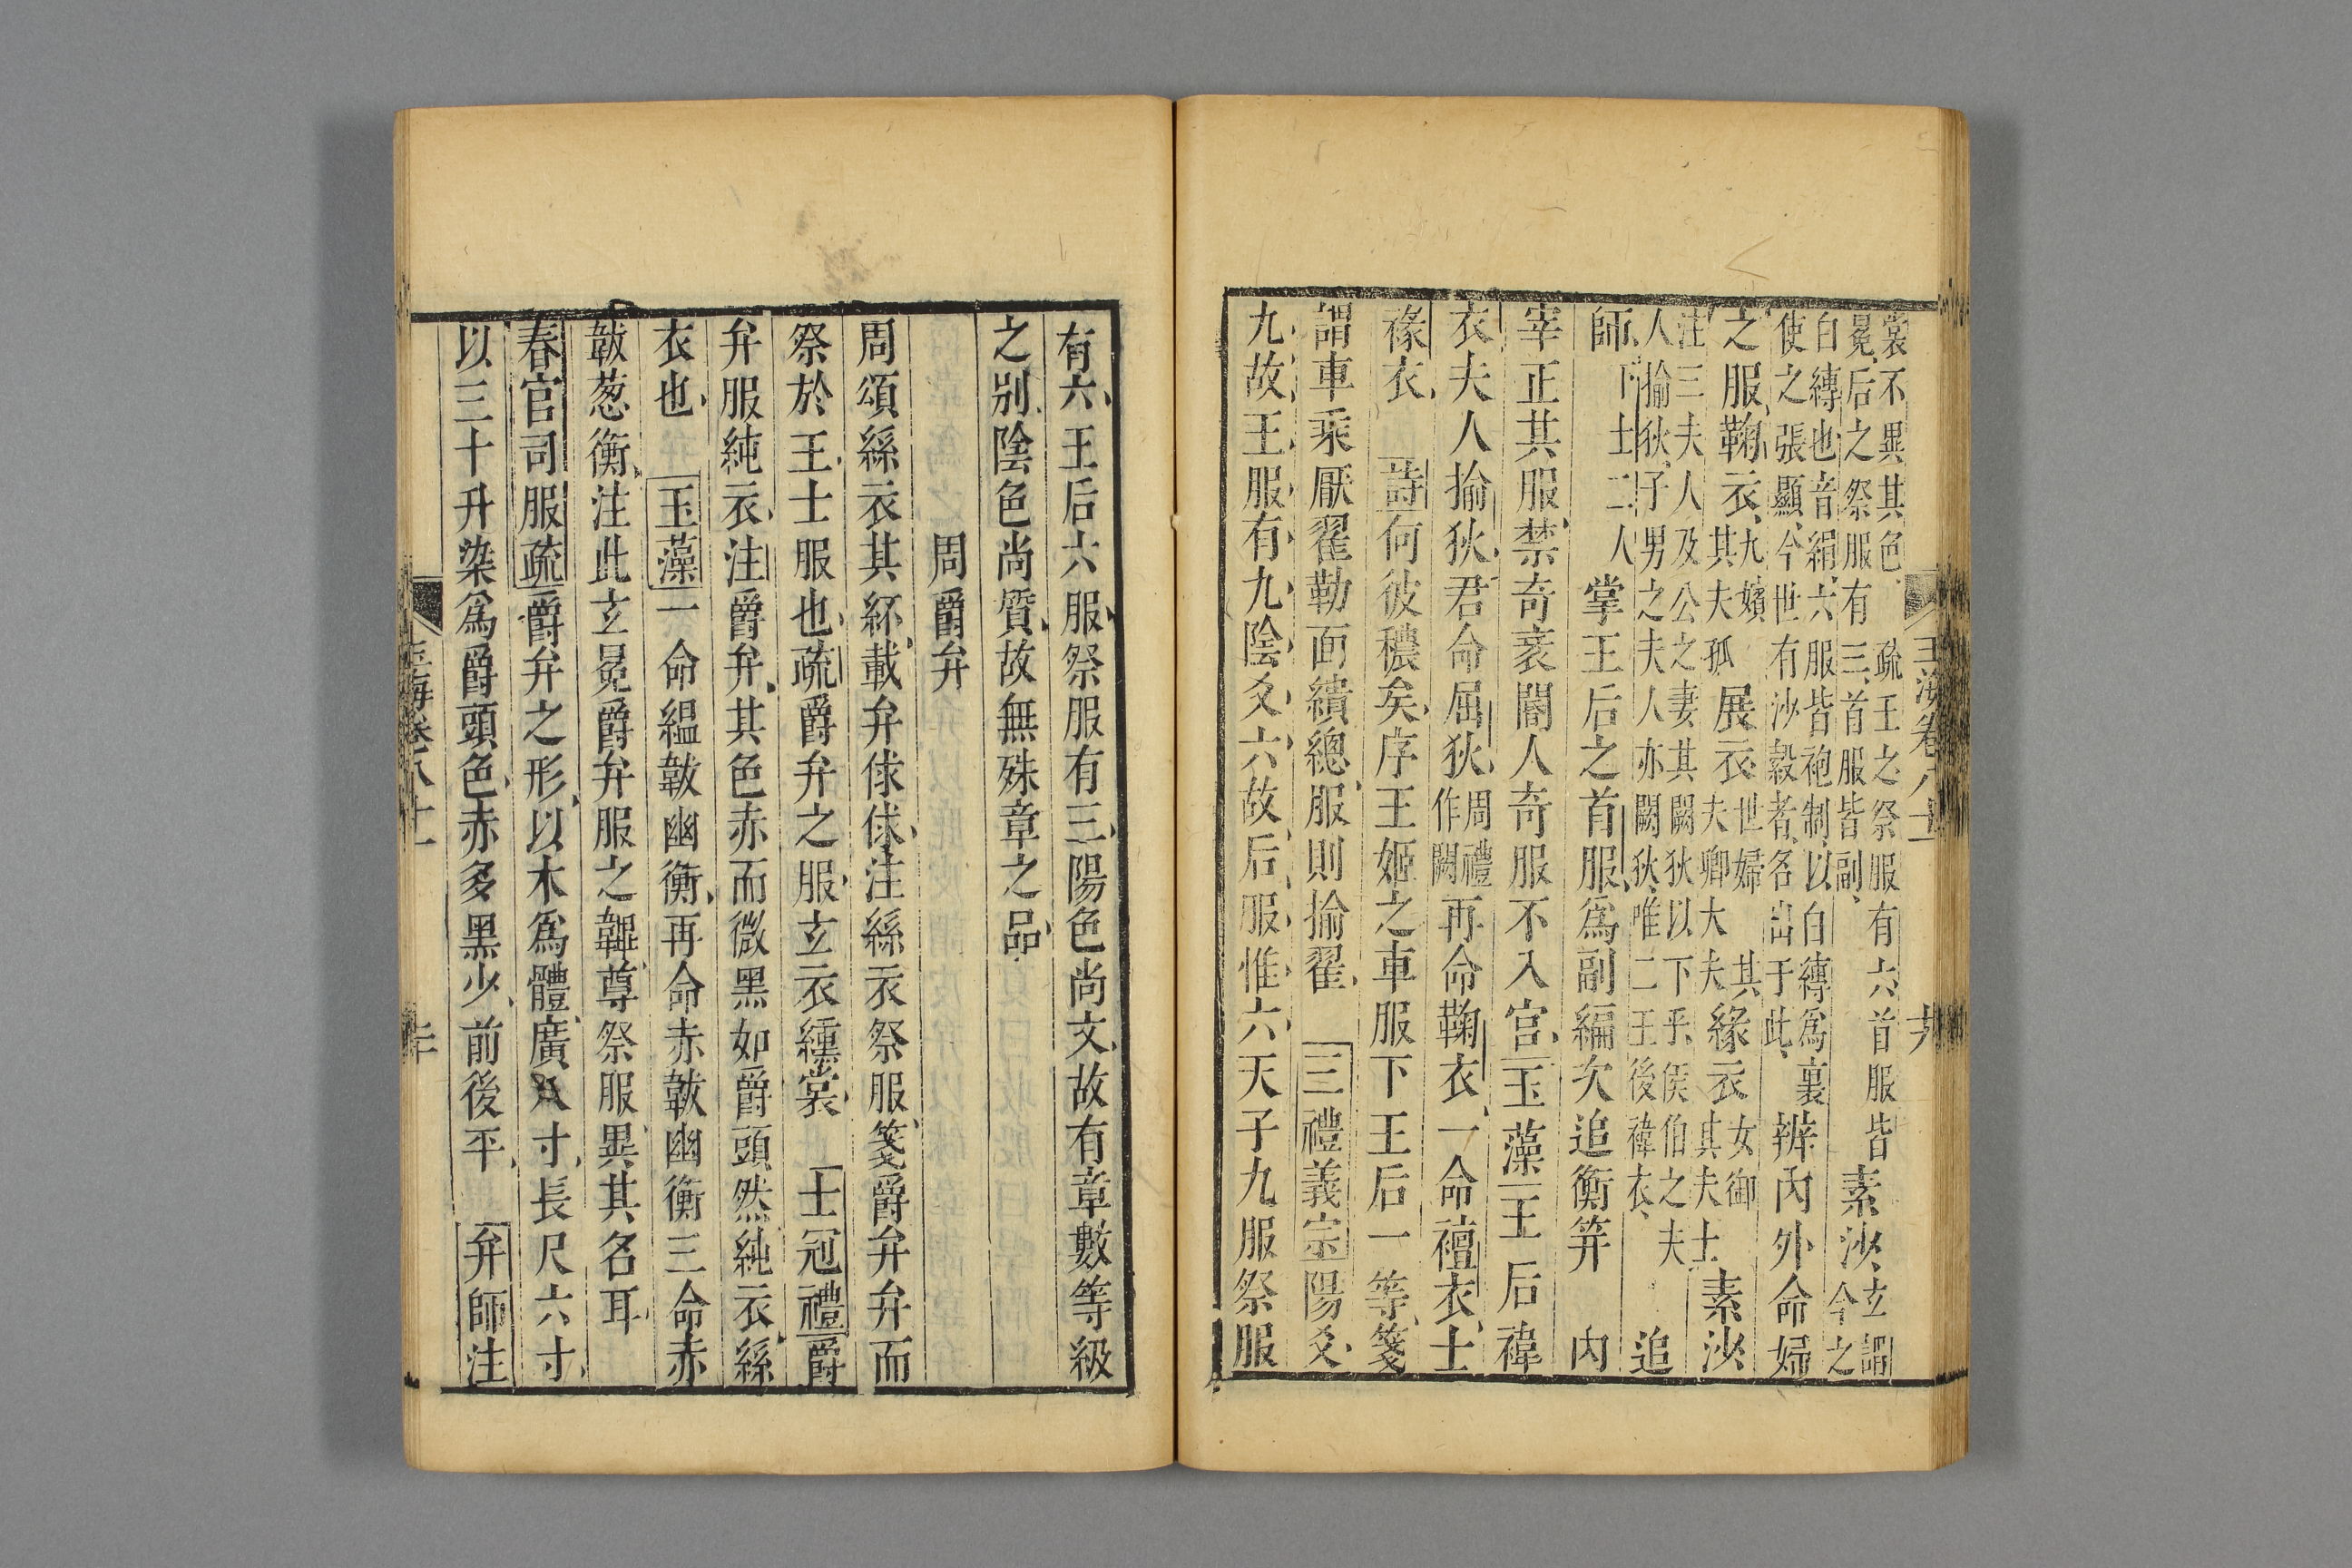 裳不異其色、疏王之祭服有六首服皆
冕、后之祭服有三、首服皆副、
素沙、
玄謂
今之
白縳也音絹、六服皆袍制、以白縳爲裏
使之張顯、今世有沙縠者、名出于此、
辨內外命婦
之服鞠衣、
九嬪
其夫孤
展衣
世婦其
夫卿大夫
緣衣
女御
其夫士
素沙
注三夫人及公之妻其闕狄以下乎、侯伯之夫
人揄狄、子男之夫人亦闕狄、唯二王後褘衣、
追
師、下士二人 掌王后之首服、爲副編次追衡筓 內
宰正其服、禁奇衺閽人奇服不入宮、玉藻王后褘
衣夫人揄狄、君命屈狄、
周禮
作闕
再命鞠衣、一命襢衣、士
褖衣、 詩何彼穠矣、序王姬之車服下王后一等、箋
謂車乘厭翟勒面繢總、服則揄翟、 三禮義宗陽爻、
九、故王服有九、陰爻六、故后服惟六、天子九服祭服
有六、王后六服、祭服有三、陽色尚文、故有章數等級
之別、陰色尚質、故無殊章之品、
周爵弁
周頌絲衣其紑、載弁俅俅、注絲衣祭服、箋爵弁弁而
祭於王、士服也、疏爵弁之服、玄衣纁裳、 士冠禮爵
弁服純衣、注爵弁、其色赤而微黑如爵頭然、純衣、絲
衣也、 玉藻一命縕韍幽衡、再命赤韍幽衡三命赤
韍葱衡、注此玄冕爵弁服之韠、尊祭服、異其名耳、
春官司服疏爵弁之形、以木爲體、廣八寸、長尺六寸、
以三十升染爲爵頭色、赤多黑少、前後平、 弁師注